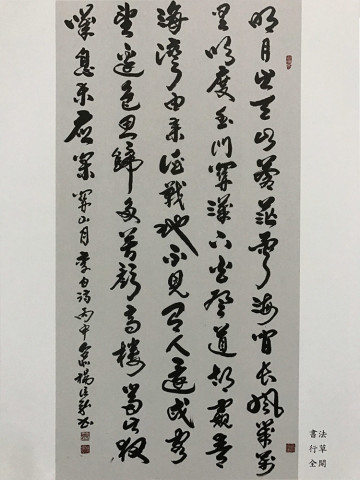 明月出天山蒼茫雲海間長風幾萬
里吹度玉門關漢下白登道胡窺青
海灣由來征戰地不見有人還戍客
望邊色思歸多苦顏高樓當此夜
嘆息未應閑 關山月 李白詩 丙申 楊 書
書法
行草
全開